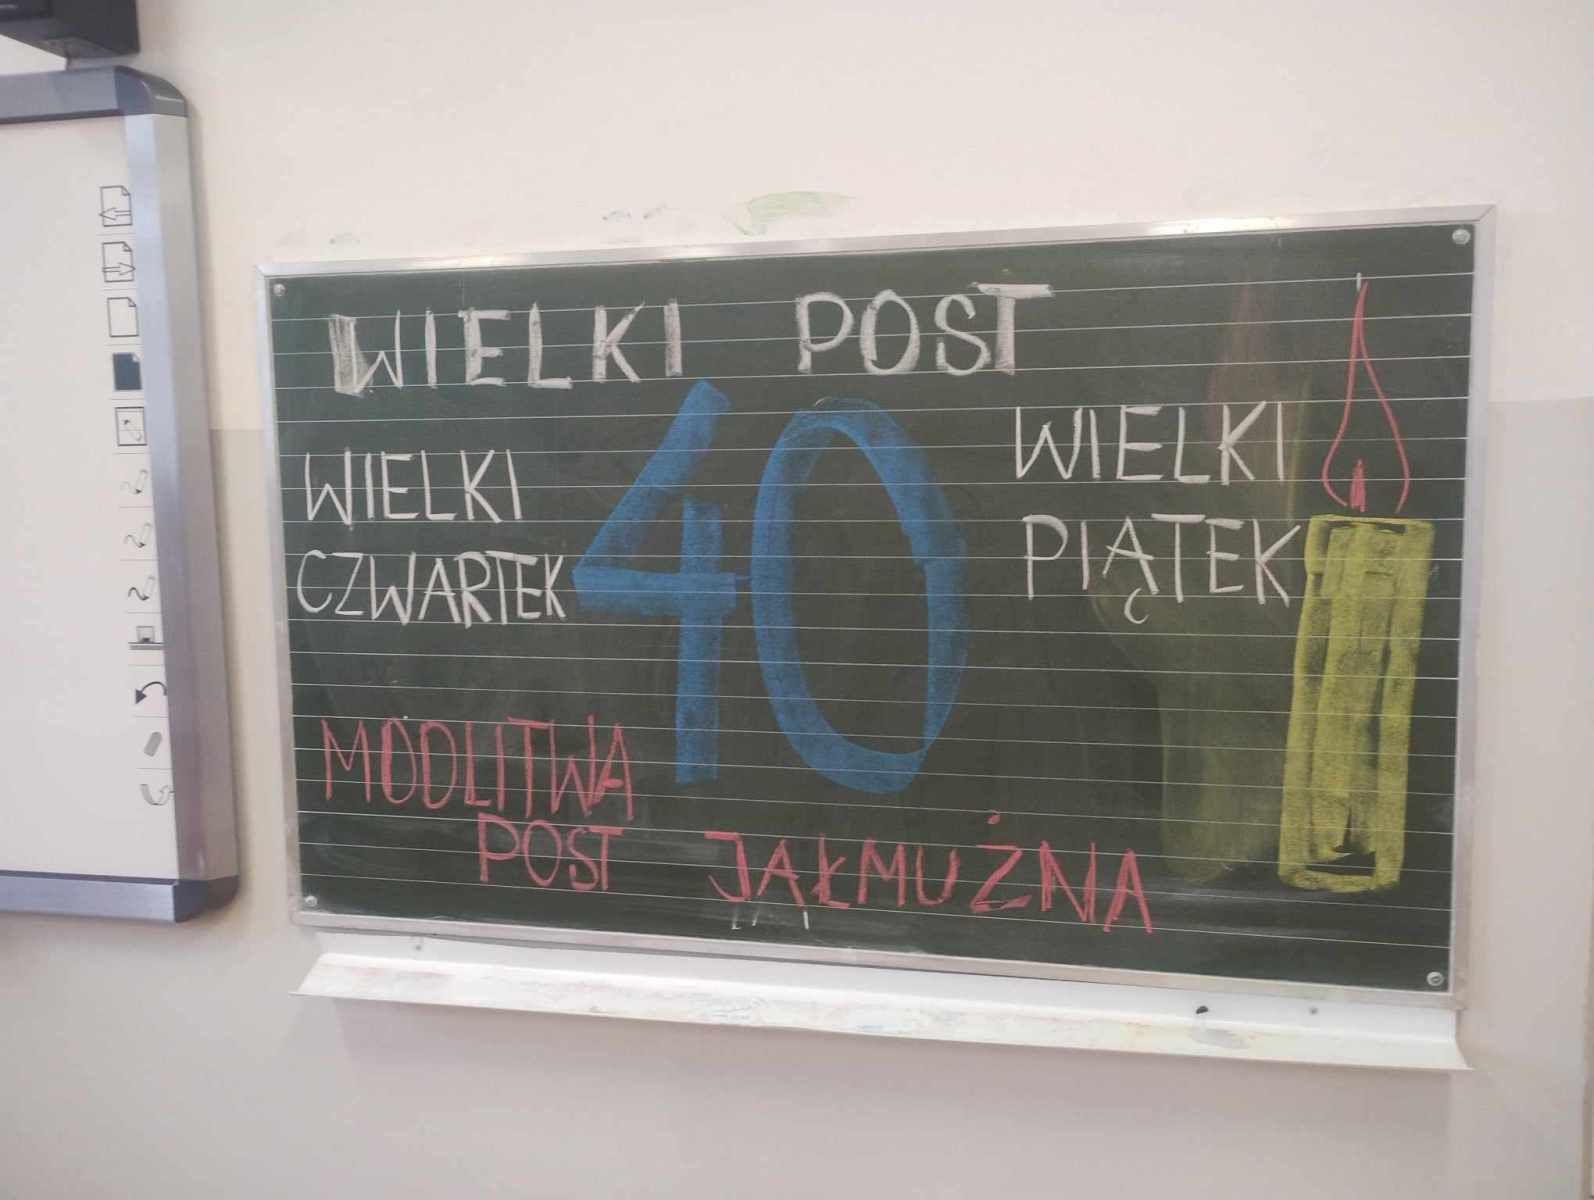 WIELKI POST
WIELKI
CZWARTEK
40
WIELKI
PIĄTEK
MODLITWA
POST JAŁMUŻNA